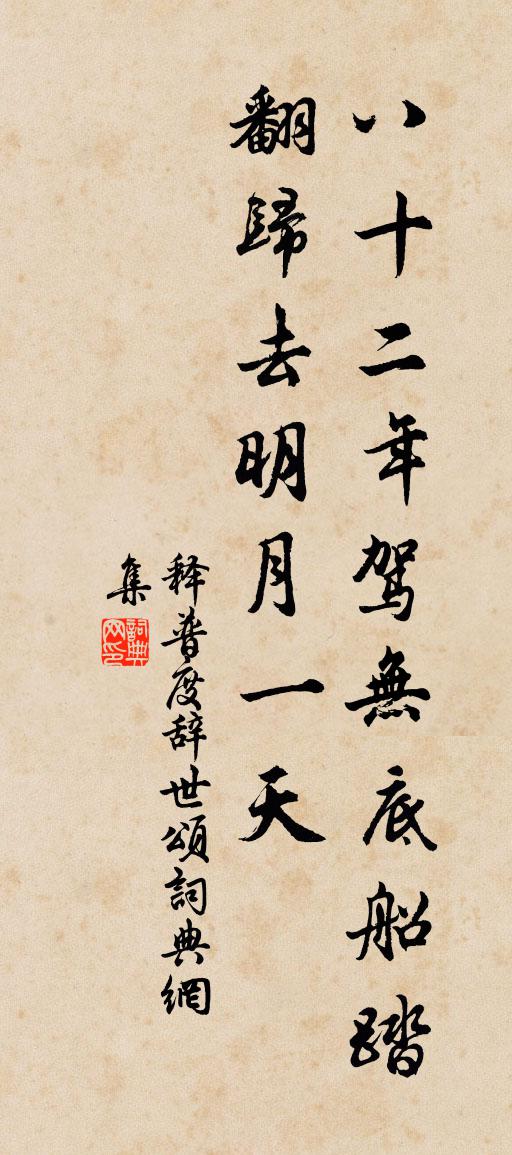 八十二年駕無底船踏
翻歸去明月一天
释普度辞世頌詞典網
集
詞典
网印